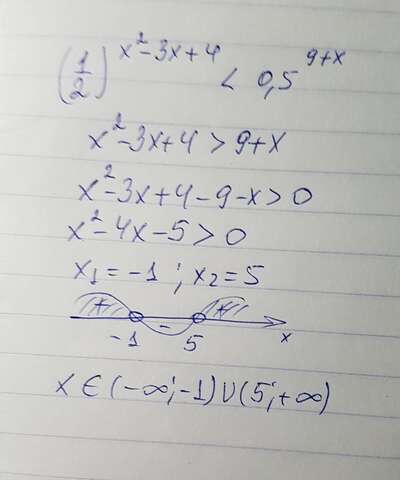 (1/2)^(x²-3x+4) < 0,5^(9+x)
x²-3x+4 > 9+x
x²-3x+4-9-x>0
x²-4x-5>0
x₁=-1; x₂=5
+ - +
-1 5 x
x∈(-∞;-1)∪(5;+∞)